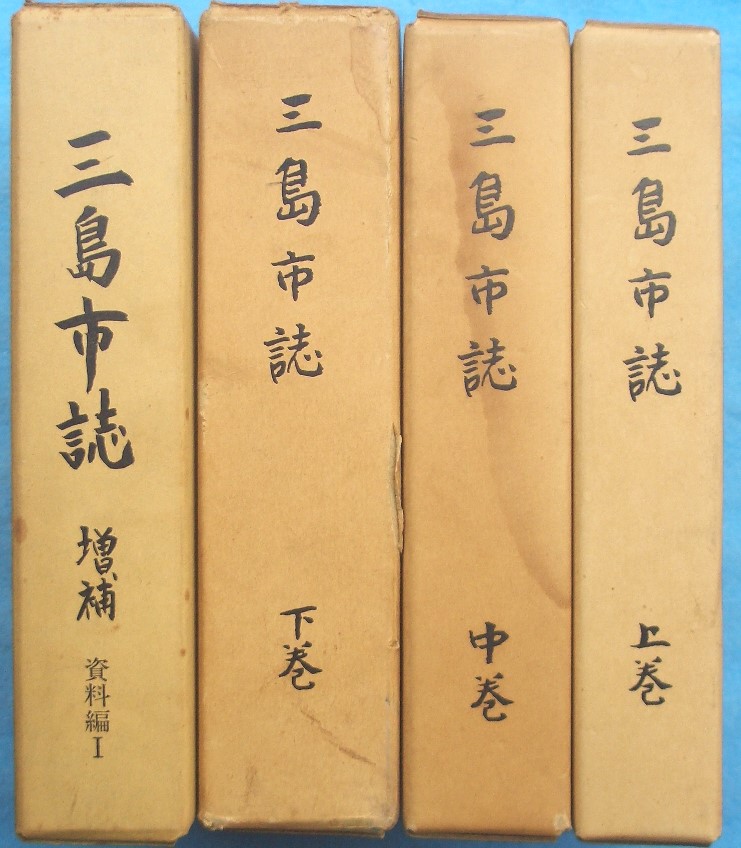 三島市誌 上巻
三島市誌 中巻
三島市誌 下巻
三島市誌 増補 資料編Ⅰ